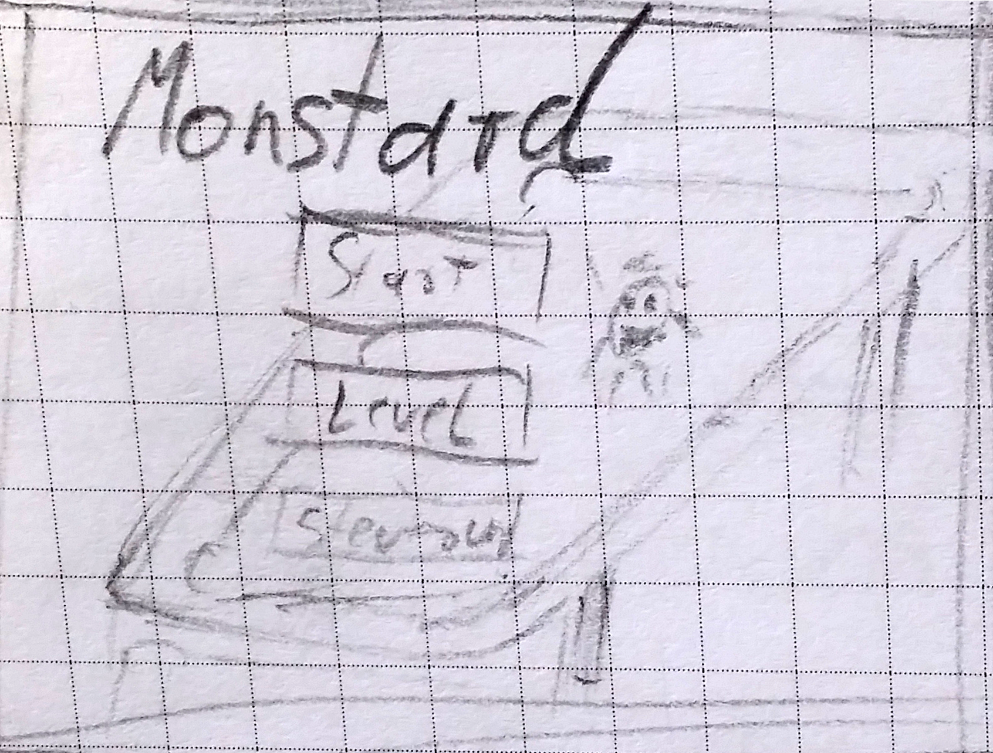 Monstard
Start
Level
Steuerung